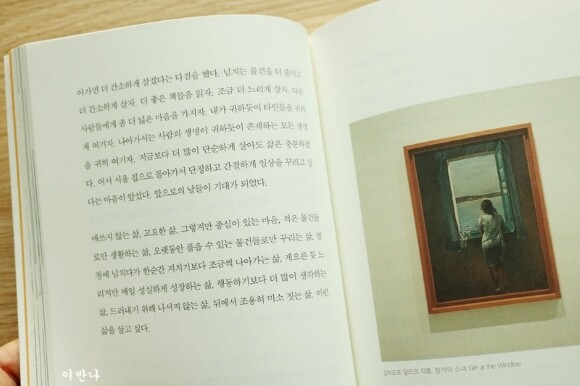 아가면 더 간소하게 살겠다는 다짐을 했다. 넘치는 물건을 더 줄이고
더 간소하게 살자. 더 좋은 책들을 읽자. 조금 더 느리게 살자. 다른
사람들에게 좀 더 넓은 마음을 가지자. 내가 귀하듯이 타인들을 귀하
게 여기자. 나아가서는 사람의 생명이 귀하듯이 존재하는 모든 생명
을 귀히 여기자. 지금보다 더 많이 단순하게 살아도 삶은 충분하
다. 어서 서울 집으로 돌아가서 단정하고 간결하게 일상을 꾸리고 싶
다는 마음이 앞섰다. 앞으로의 날들이 기대가 되었다.
애쓰지 않는 삶, 고요한 삶, 그렇지만 중심이 있는 마음, 적은 물건들
로만 생활하는 삶, 오랫동안 품을 수 있는 물건들로만 꾸리는 삶, 열
정에 넘치다가 한순간 지치기보다 조금씩 나아가는 삶, 게으른 듯 느
리지만 매일 성실하게 성장하는 삶, 행동하기보다 더 많이 생각하는
삶, 드러내기 위해 나서지 않는 삶, 뒤에서 조용히 미소 짓는 삶, 이런
삶을 살고 싶다.
살바도르 달리의 작품, 창가의 소녀 Girl at the Window
이반나